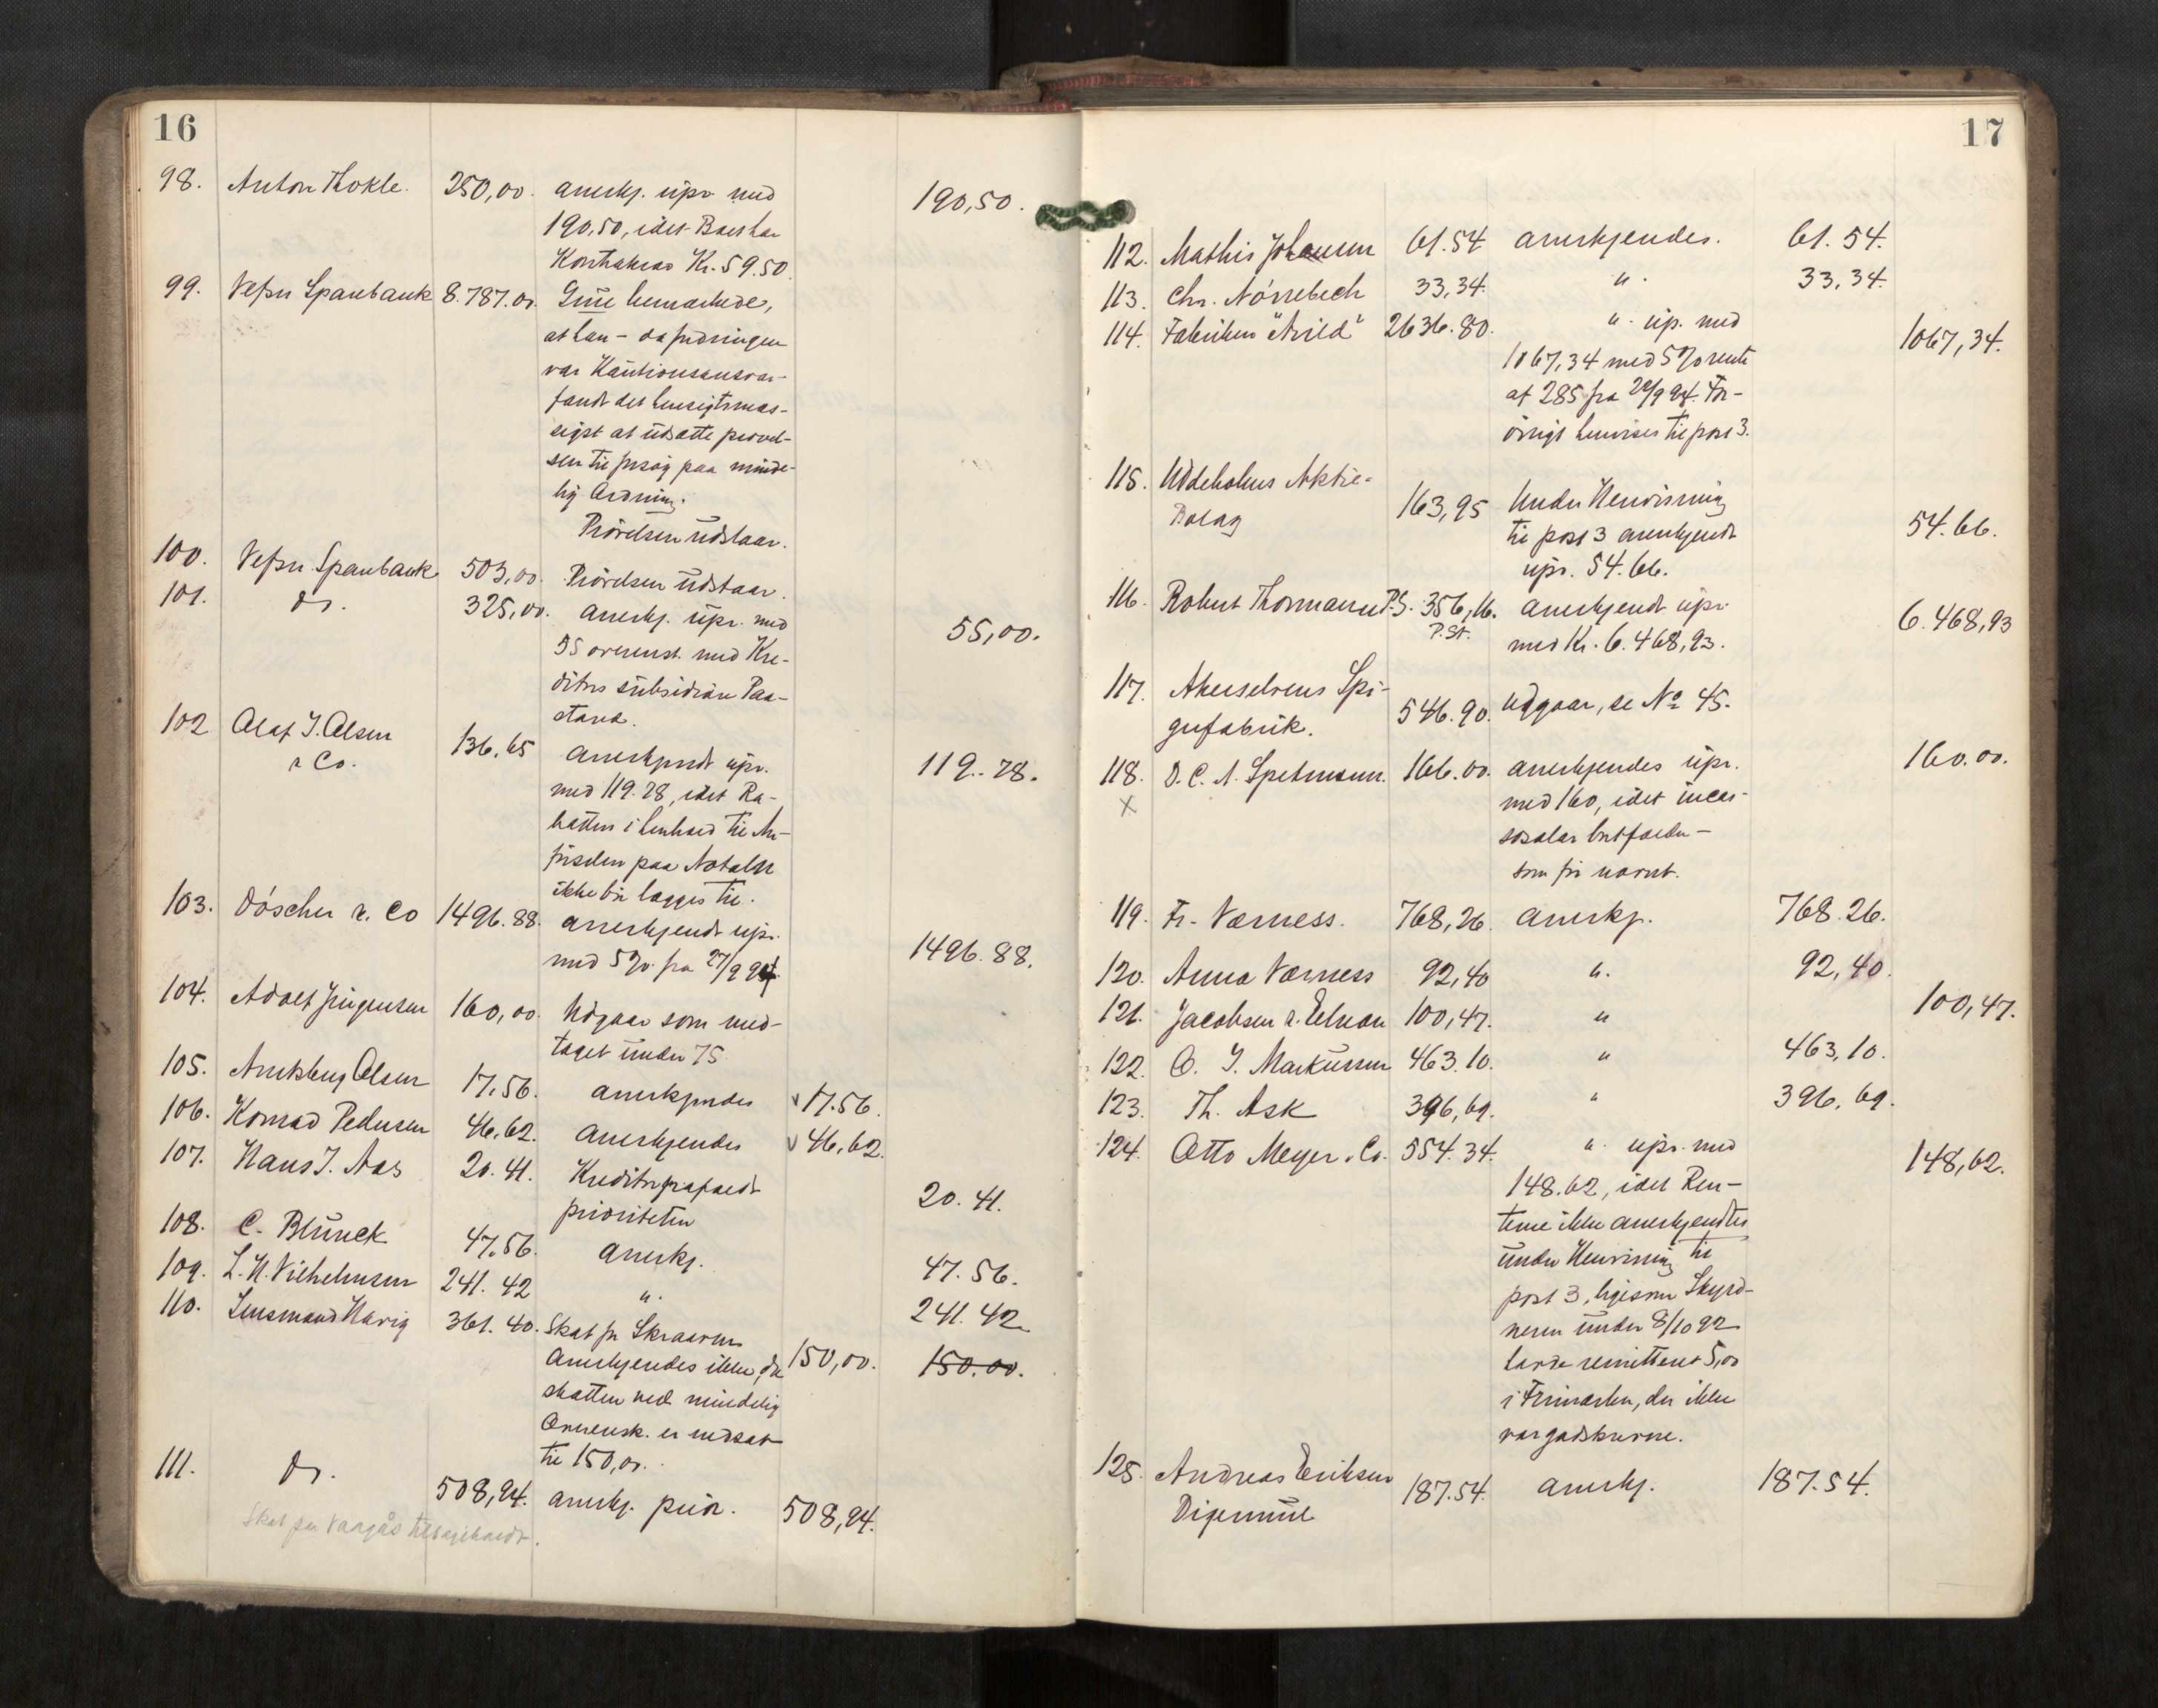 16
98. Anton Thokle. 250,00. anerkj. upr med 190,50.
190,50, idet Boet har
Kontrakrav Kr. 59.50.
99. Vefsn Sparebank 8.787.00. Grüe bemærkede,
at han – da fordringen
var Kautionsansvar –
fandt det hensigtsmæs-
sigst at udsætte prøvel-
sen til forsøg paa minde-
lig Ordning.
Prövelsen udstaar.
100. Vefsn Sparebank 503,00. Prövelsen udstaar.
101. do. 325,00. anerkj. upr. med 55,00.
55 overenst. med Kre-
ditors subsidiære Paa-
stand.
102 Olaf T. Olsen 136.65 anerkjendt upr. 119.28.
& Co.
med 119.28, idet Ra-
batten i henhold til An-
förselen paa Notaen
ikke bør lægges til.
103. Döscher & Co 1496.88. anerkjendt upr. 1496.88.
med 5% fra 27/9 94
104. Adolf Jürgensen 160,00. Udgaar som med-
taget under 75
105. Arntsberg Olsen 17.56. anerkjendes 17.56.
106. Konrad Pedersen 46.62. anerkjendes 46,62.
107. Hans J. Aas 20.41. Kreditor frafaldt 20.41.
prioriteten
108. C. Blunck 47.56. anerkj. 47.56.
109. L. H. Vilhelmsen 241.42 ". 241.42
110. Lensmand Havig 361.40. Skat for Skraaven
Anerkjendes ikke, da 150,00. 150.00.
skatten ved mindelig
Overensk. er nedsat
til 150,00.
111. do. 508,94. anerkj. prior. 508,94.
Skat for
17
112. Mathis Johansen 61.54 anerkjendes. 61.54.
113. Chr. Nörrebech 33,34. ". 33,34.
114. Fabriken "Arild" 2636.80. ". up. med 1067,34.
1067,34 med 5% rente
af 285 fra 94. For-
övrigt henvises til post 3.
115. Uddeholms Aktie-
Bolag 163,95 Under Henvisning 54.66.
til post 3 anerkjendt
upr. 54.66.
116. Robert Thormann P.S. 356,16. anerkjendt upr. 6.468,93
P.St.
med Kr. 6.468,93.
117. Akerselvens Spi-
gerfabrik. 546.90. Udgaar, se No 45.
118. D. C. A. Spethmann. 166.00. anerkjendes upr. 160.00.
X
med 160, idet incas-
sosalær bortfalder –
som før nævnt.
119. Fr. Værness. 768,26. anerkj. 768.26.
120. Anna Værness 92,40 ". 92,40.
121. Jacobsen & 100,47. " 100,47.
122. O. J. Markussen 463.10. " 463,10.
123. Th. Ask 396,69. " 396,69.
124. Otto Meyer & Co. 554.34. ". upr. med 148,62.
148.62, idet Ren-
terne ikke anerkjendtes
under Henvisning til
post 3, ligesom Skyld-
neren under 8/10 92
havde remitteret 5,00
i Frimærker, der ikke
var godskrevne.
125. Andreas Eriksen 187.54. anerkj. 187.54.
Digermul